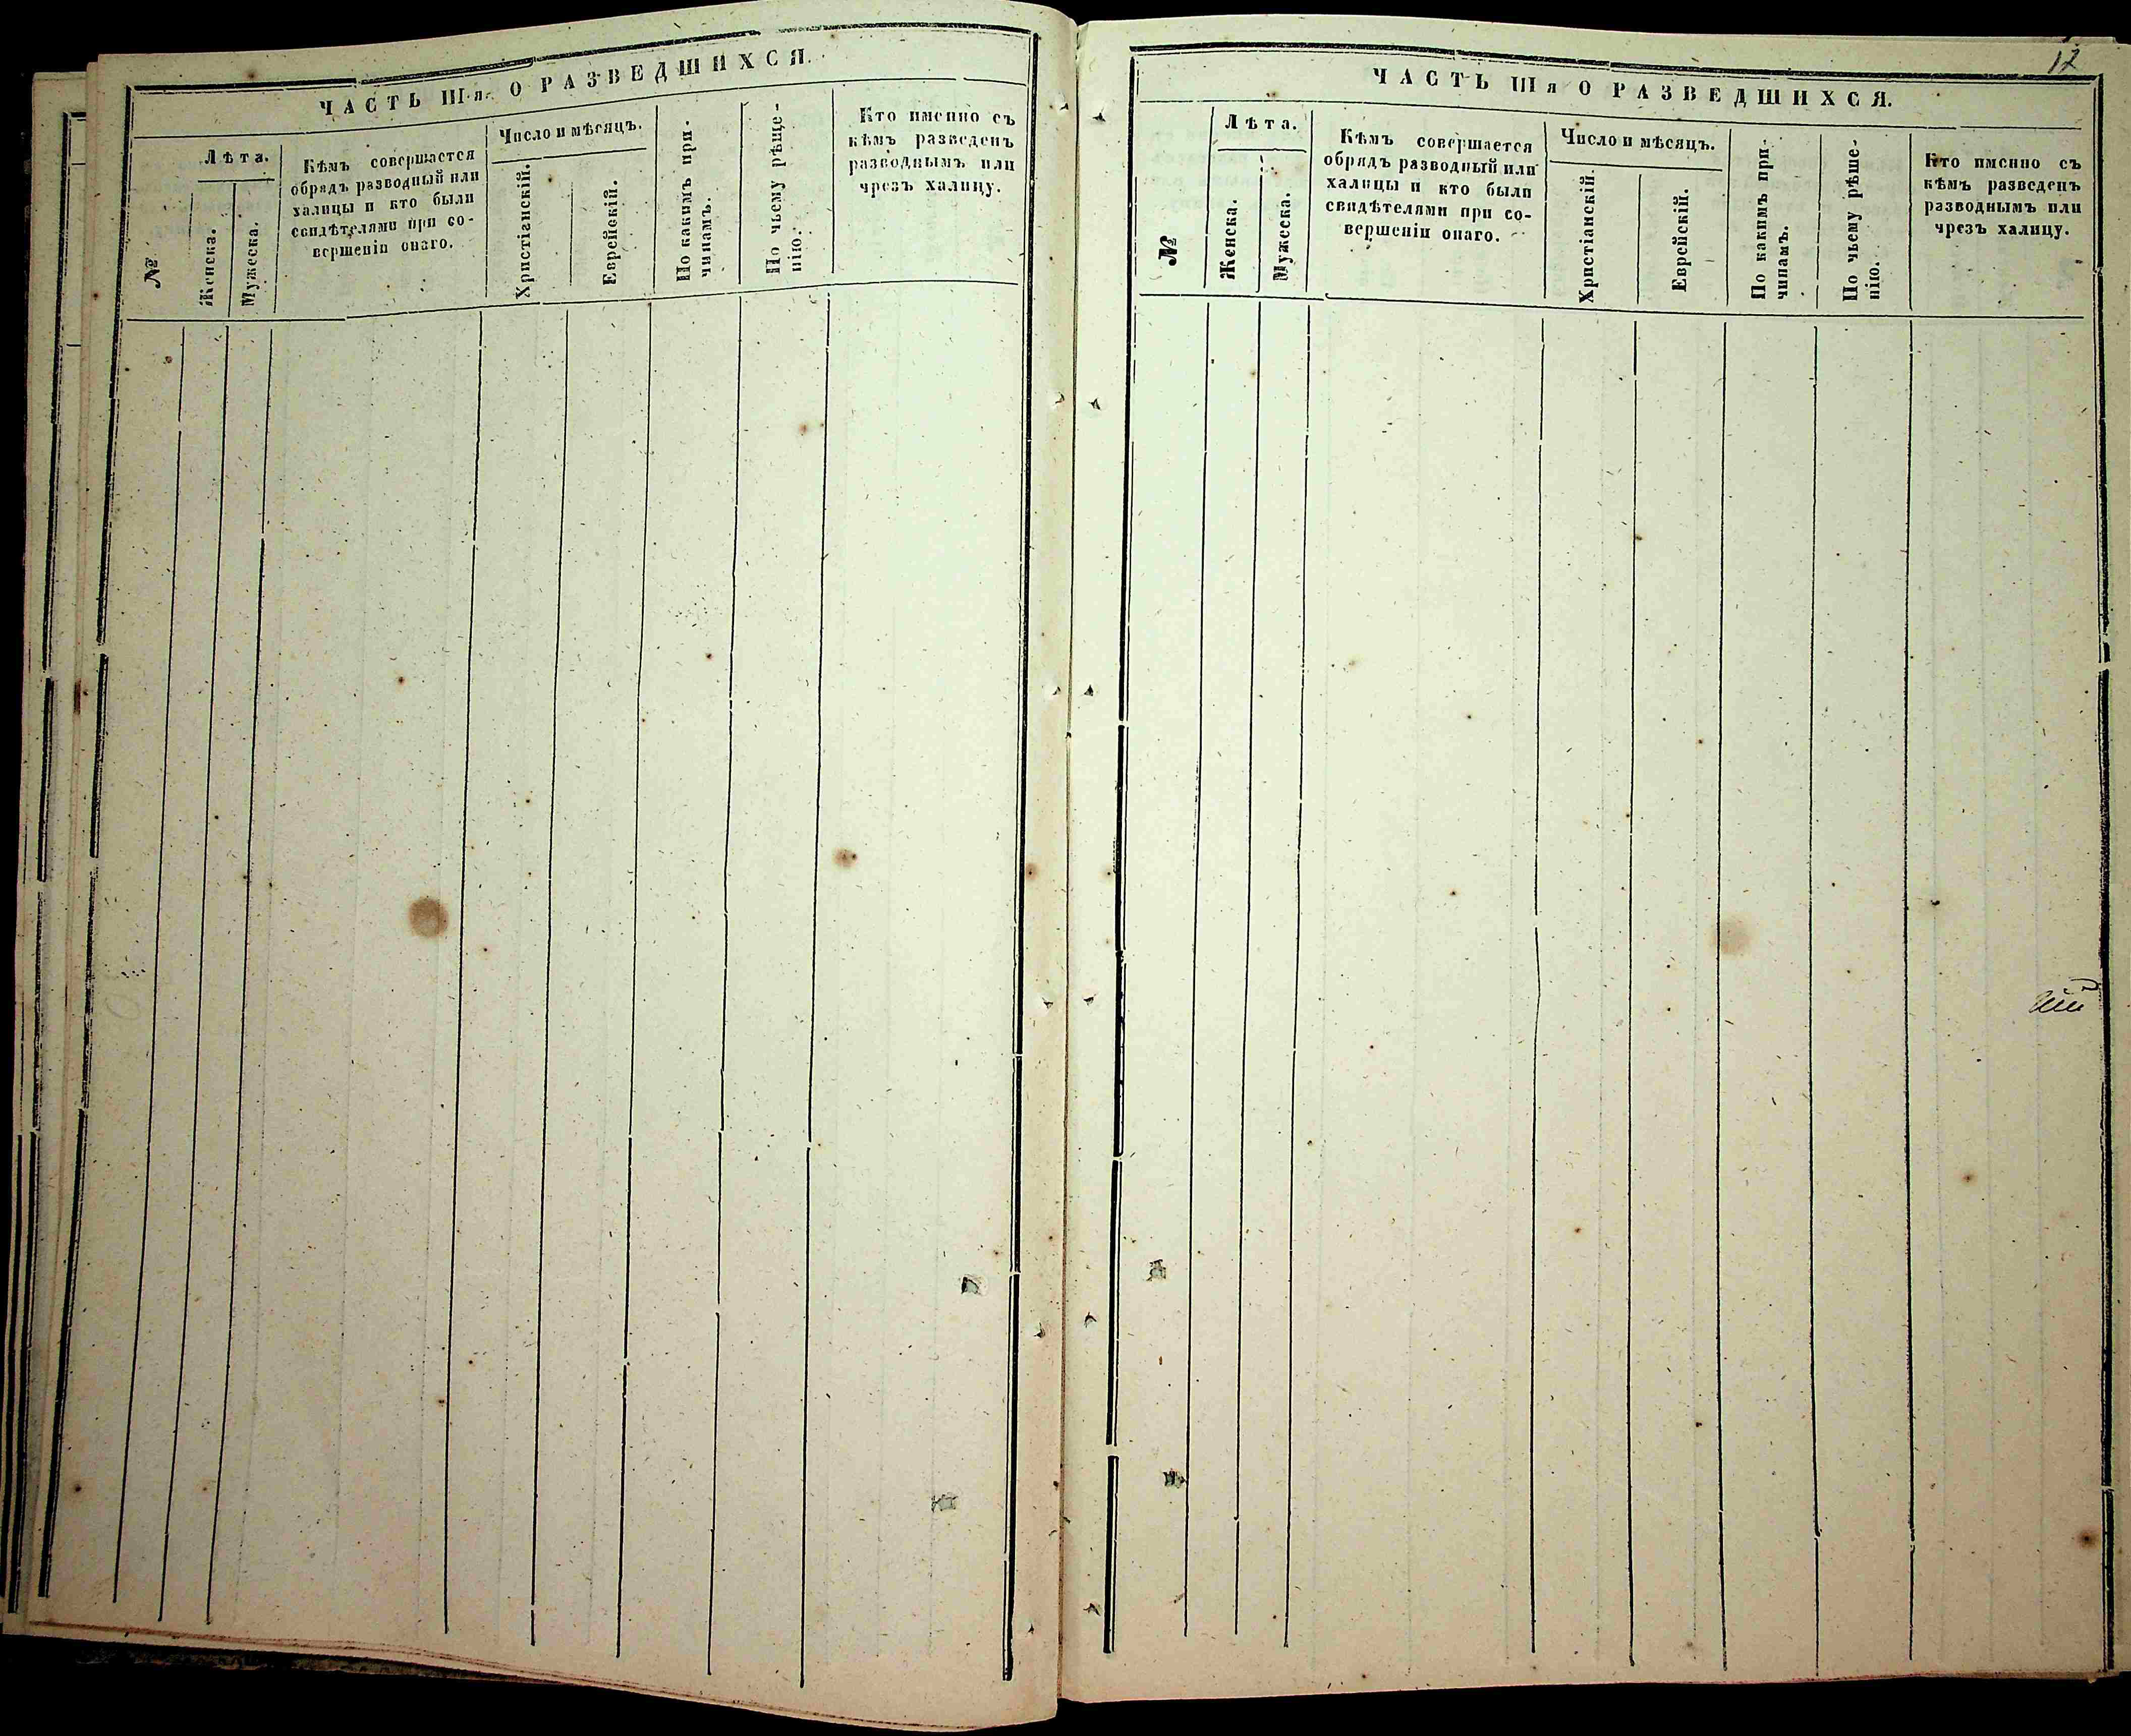 ЧАСТЬ III я. О РАЗВЕДШИХСЯ.
№
Лѣта.
Женска.
Мужеска.
Кѣмъ совершается
обрядъ разводный или
халицы и кто были
свидѣтелями при со-
вершеніи онаго.
Число и мѣсяцъ.
Христіанскій.
Еврейскій.
По какимъ при-
чинамъ.
По чьему рѣше-
нію.
Кто именно съ
кѣмъ разведенъ
разводнымъ или
чрезъ халицу.
12
ЧАСТЬ III я О РАЗВЕДШИХСЯ.
№
Лѣта.
Женска.
Мужеска.
Кѣмъ совершается
обрядъ разводный или
халицы и кто были
свидѣтелями при со-
вершеніи онаго.
Число и мѣсяцъ.
Христіанскій.
Еврейскій.
По какимъ при-
чинамъ.
По чьему рѣше-
нію.
Кто именно съ
кѣмъ разведенъ
разводнымъ или
чрезъ халицу.